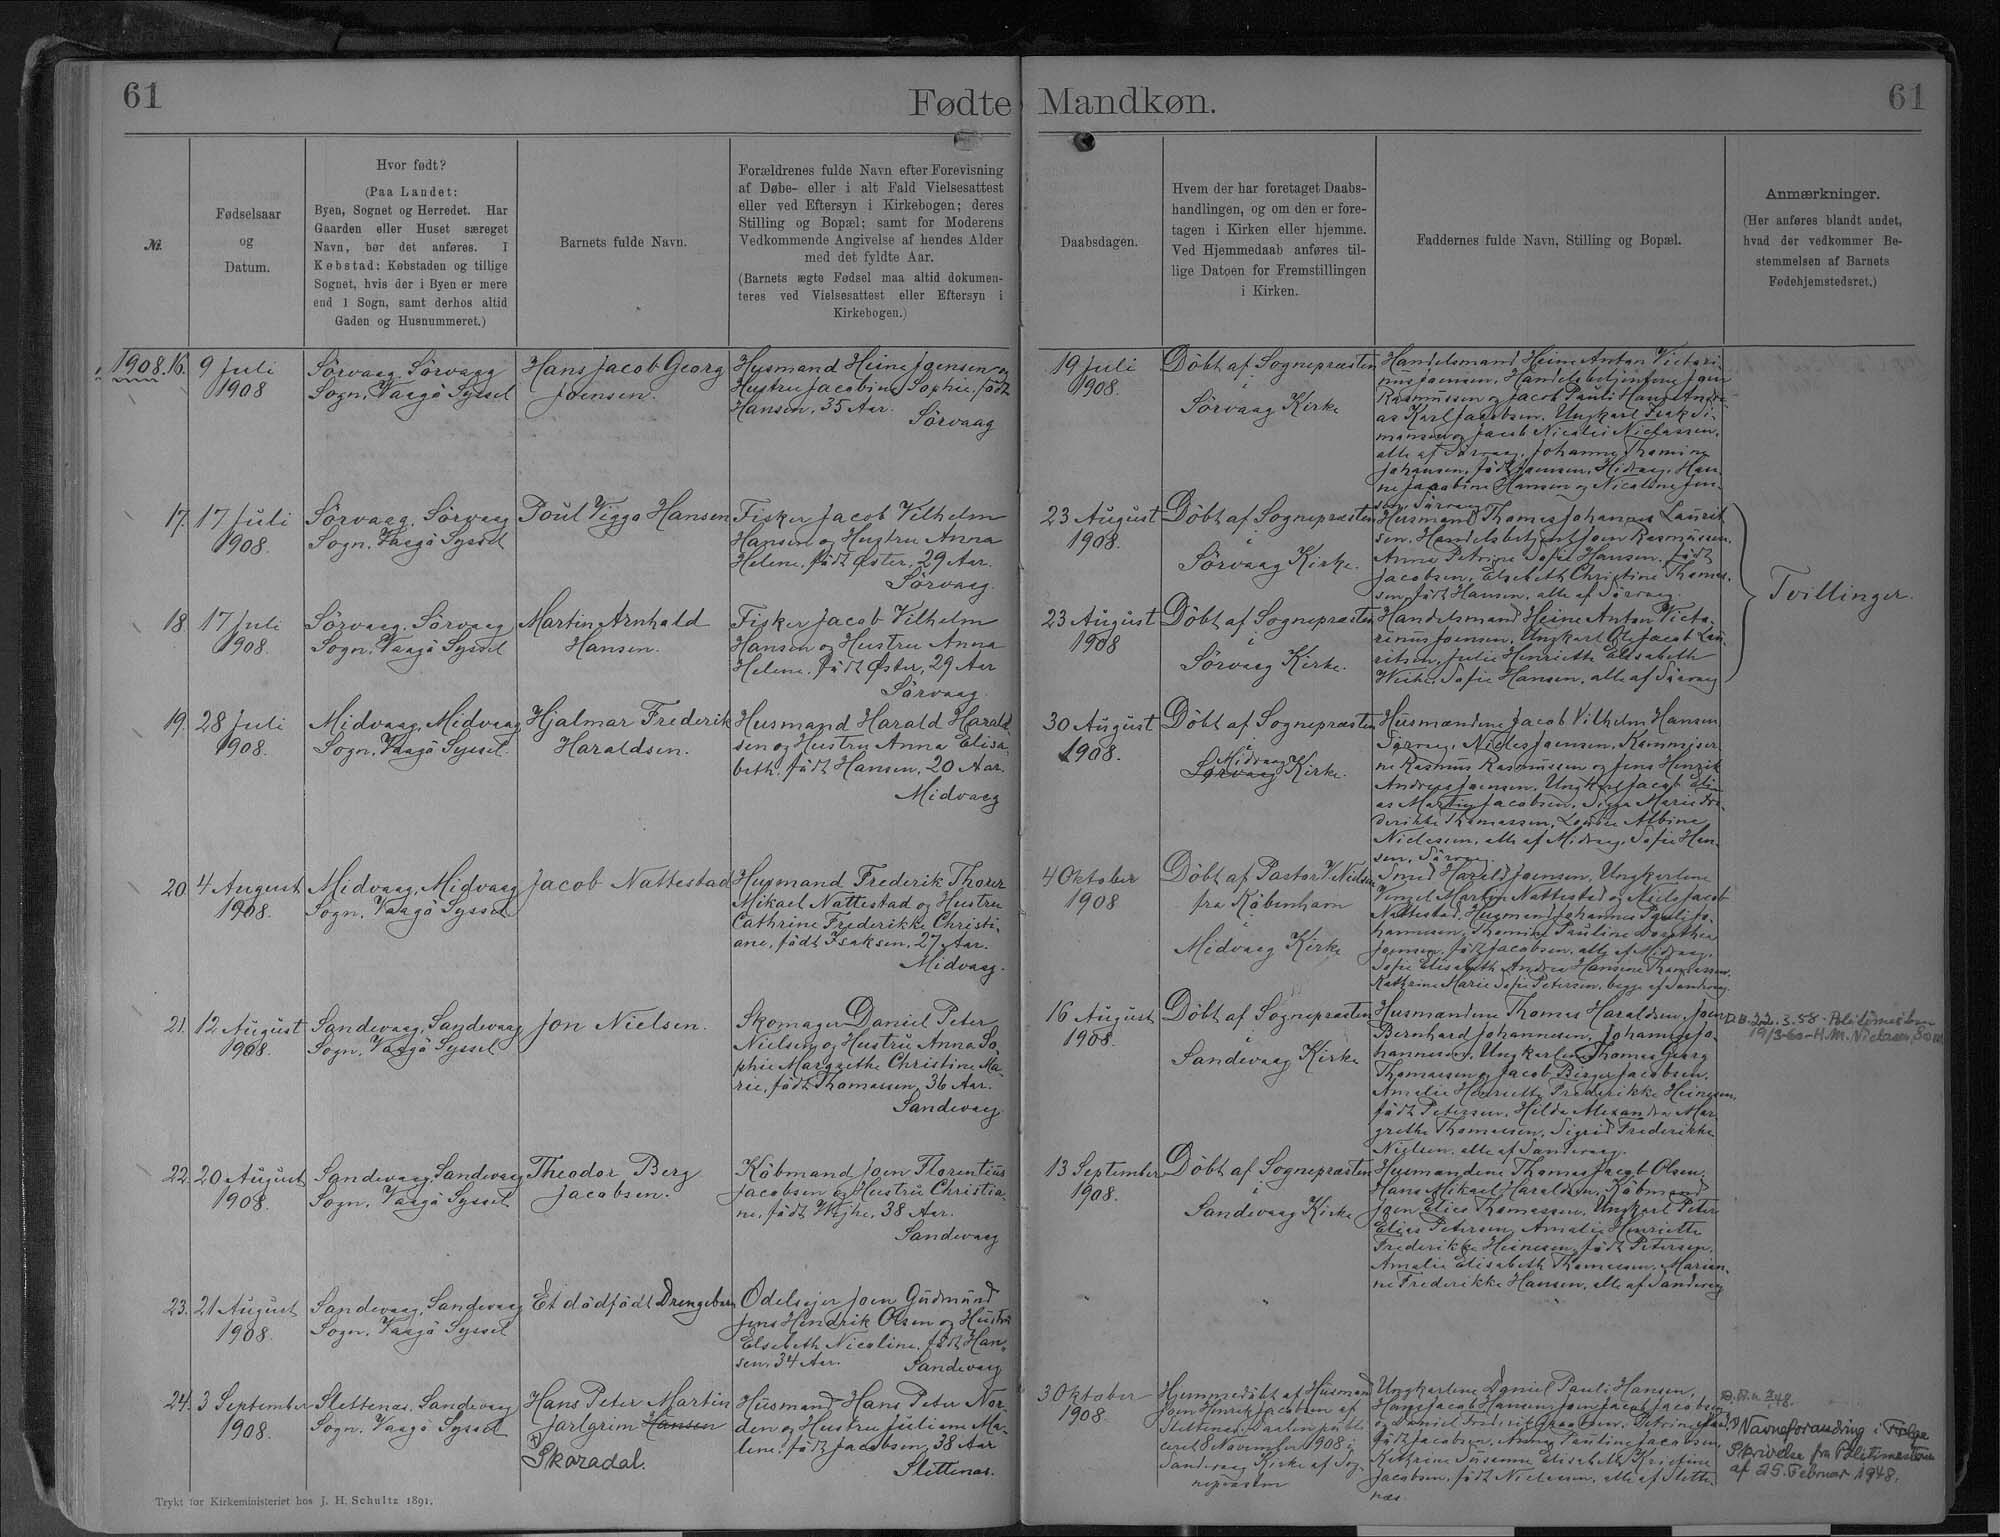 61
Fødte Mandkøn.
61
№.
Fødselsaar
og
Datum.
Hvor født?
(Paa Landet:
Byen, Sognet og Herredet. Har
Gaarden eller Huset særeget
Navn, bør det anføres. I
Købstad: Købstaden og tillige
Sognet, hvis der i Byen er mere
end 1 Sogn, samt derhos altid
Gaden og Husnummeret.)
Barnets fulde Navn.
Forældrenes fulde Navn efter Forevisning
af Døbe- eller i alt Fald Vielsesattest
eller ved Eftersyn i Kirkebogen; deres
Stilling og Bopæl; samt for Moderens
Vedkommende Angivelse af hendes Alder
med det fyldte Aar.
(Barnets ægte Fødsel maa altid dokumen-
teres ved Vielsesattest eller Eftersyn i
Kirkebogen.)
Daabsdagen.
Hvem der har foretaget Daabs-
handlingen, og om den er fore-
tagen i Kirken eller hjemme.
Ved Hjemmedaab anføres til-
lige Datoen for Fremstillingen
i Kirken.
Faddernes fulde Navn, Stilling og Bopæl.
Anmærkninger.
(Her anføres blandt andet,
hvad der vedkommer Be-
stemmelsen af Barnets
Fødehjemstedsret.)
1908. 16.
9 Juli
1908
Sörvaag, Sörvaag
Sogn, Vaagö Syssel
Hans Jacob Georg
Joensen.
Husmand Heine Joensen og
Hustru Jacobine Sophie, født
Hansen, 35 Aar.
Sörvaag
19 Juli
1908.
Döbt af Sognepræsten
i
Sörvaag Kirke
Handelsmand Heine Anton Victori-
nus Joensen, Handelsbetjentene Joen
Rasmussen og Jacob Pauli Hans Andre-
as Karl Jacobsen, Ungkarl Isak Si-
monsen og Jacob Nicolai Niclassen,
alle af Sörvaag, Johanne Thomine
Johansen, født Joensen, Midvaag, Han-
ne Jacobine Hansen og Nicoline Jen-
sen, Sörvaag.
17.
17 Juli
1908.
Sörvaag, Sörvaag
Sogn, Vaagö Syssel
Poul Viggo Hansen
Fisker Jacob Vilhelm
Hansen og Hustru Anna
Helene, født Øster, 29 Aar.
Sörvaag.
23 August
1908.
Döbt af Sognepræsten
i
Sörvaag Kirke.
Husmand Thomas Johannes Laurit-
sen, Handelsbetjent Joen Rasmussen,
Anna Petrine Sofie Hansen, født
Jacobsen, Elsebeth Christine Thomas-
sen, født Hansen, alle af Sörvaag.
Tvillinger.
18.
17 Juli
1908.
Sörvaag, Sörvaag
Sogn, Vaagö Syssel
Martin Arnhald
Hansen.
Fisker Jacob Vilhelm
Hansen og Hustru Anna
Helene, født Øster, 29 Aar
Sörvaag.
23 August
1908
Döbt af Sognepræsten
i
Sörvaag Kirke.
Handelsmand Heine Anton Victo-
rinus Joensen, Ungkarl Ole Jacob Lau-
ritsen, Julie Henriette Elisabeth
Weihe, Sofie Hansen, alle af Sörvaag
19.
28 Juli
1908.
Midvaag, Midvaag
Sogn, Vaagö Syssel
Hjalmar Frederik
Haraldsen.
Husmand Harald Harald-
sen og Hustru Anna Elisa-
beth, født Hansen, 20 Aar.
Midvaag
30 August
1908.
Döbt af Sognepræsten
i
Midvaag
Sörvaag Kirke.
Husmændene Jacob Vilhelm Hansen
Sörvaag, Niclas Joensen,
Rasmus Rasmussen og Jens Henrik
Andreas Joensen, Ungkarl Jacob Eli-
as Martin Jacobsen, Maria Fre-
derikke Thomassen, Louise Albine
Niclasen, alle af Midvaag, Sofie Han-
sen, Sörvaag.
20
4 August
1908.
Midvaag, Midvaag
Sogn, Vaagö Syssel
Jacob Nattestad
Husmand Frederik Thorer
Mikael Nattestad og Hustru
Cathrine Frederikke Christi-
ane, født Isaksen, 27 Aar.
Midvaag.
4 Oktober
1908
Döbt af Pastor V. Nielsen
fra Köbenhavn
i
Midvaag Kirke
Smed Harald Joensen, Ungkarlene
Venzel Martin Nattestad og Niels Jacob
Nattestad, Husmand Johannes Pauli Jo-
hannesen, Thomine Pauline Dorothea
Joensen, født Jacobsen, alle af Midvaag,
Sofie Elisabeth Andrea Hansine Thomassen,
Kathrine Marie Sofie Petersen, begge af Sandevaag.
21.
12 August
1908.
Sandevaag, Sandevaag
Sogn, Vaagö Syssel
Jon Nielsen.
Skomager Daniel Peter
Nielsen og Hustru Anna So-
phie Margrethe Christine Ma-
rie, født Thomassen, 36 Aar.
Sandevaag
16 August
1908.
Döbt af Sognepræsten
i
Sandevaag Kirke
Husmændene Thomas Haraldsen, Joen
Bernhard Johannesen, Johannes Jo-
hannesen, Ungkarlene Thomas Georg
Thomassen og Jacob Birger Jacobsen,
Amalie Henriette Frederikke Heinesen,
født Petersen, Hilda Alexandra Mar-
grethe Thomassen, Sigrid Frederikke
Nielsen, alle af Sandevaag.
22.
20 August
1908.
Sandevaag, Sandevaag
Sogn, Vaagö Syssel
Theodor Berg
Jacobsen.
Köbmand Joen Florentius
Jacobsen og Hustru Christia-
ne, født Weihe, 38 Aar.
Sandevaag
13 September
1908.
Döbt af Sognepræsten
i
Sandevaag Kirke
Husmændene Thomas Jacob Olsen,
Hans Mikael Haraldsen, Köbmand
Joen Elias Thomassen, Ungkarl Peter
Elias Petersen, Amalie Henriette
Frederikke Heinesen, født Petersen,
Amalie Elisabeth Thomassen, Marian-
ne Frederikke Hansen, alle af Sandevaag
23.
21 August
1908.
Sandevaag, Sandevaag
Sogn, Vaagö Syssel
Et dödfödt Drengebarn
Odelsejer Joen Gudmund
Jens Hendrik Olsen og Hustru
Elsebeth Nicoline, født Han-
sen, 34 Aar.
Sandevaag
24.
3 September
1908.
Slettenæs, Sandevaag
Sogn, Vaagö Syssel
Hans Peter Martin
Jarlgrim Hansen
Skaradal.
Husmand Hans Peter Nor-
den og Hustru Juliane Ma-
lene, født Jacobsen, 38 Aar
Slettenæs.
3 Oktober
1908.
Hjemmedöbt af Husmand
Joen Henrik Jacobsen af
Slettenæs. Daaben publi-
ceret 8 November 1908 i
Sandevaag Kirke af Sog-
nepræsten
Ungkarlene Daniel Pauli Hansen,
Hans Jacob Hansen, Joen Jacob Jacobsen
og Daniel Frederik Jacobsen,
født Jacobsen, Anna Pauline Jacobsen,
Kathrine Susanne Elisabeth
Jacobsen, født Nielsen, alle af Slette-
næs.
Navneforandring i Følge
Skrivelse fra Politimesteren
af 25. Februar 1948.
Trykt for Kirkeministeriet hos J. H. Schultz 1891.